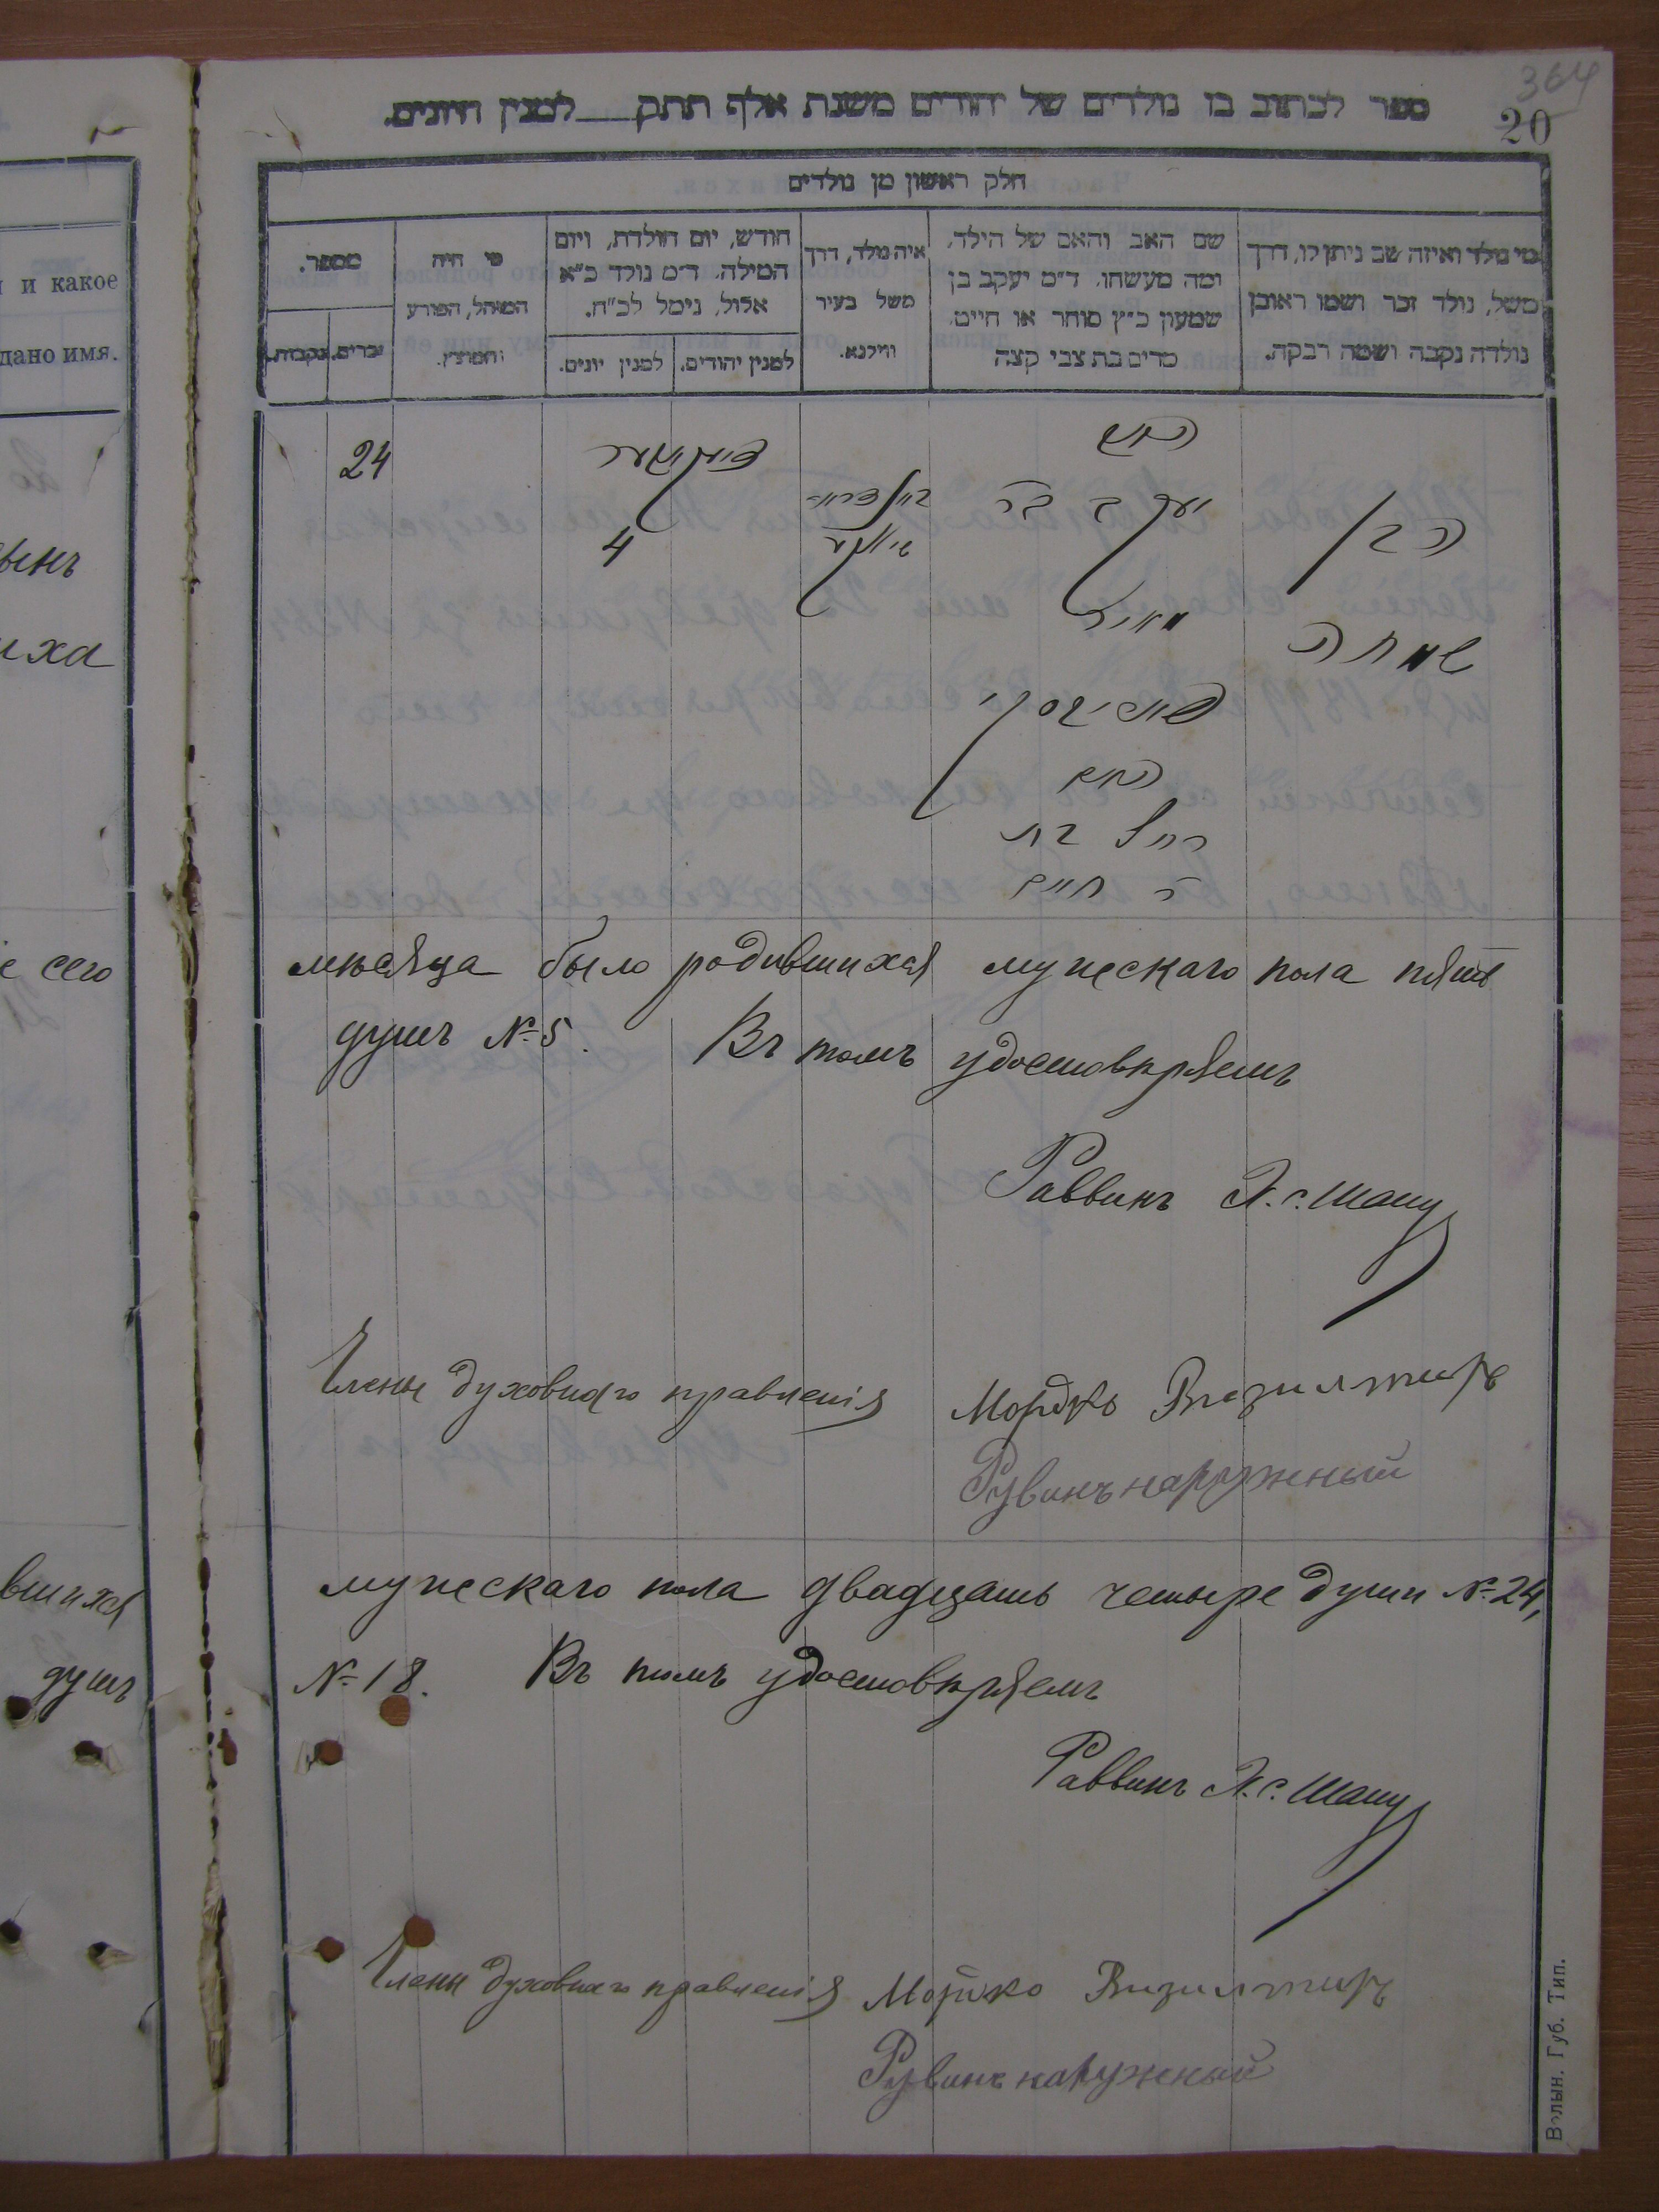 364
20
ספר לכתוב בו נולדים של יהודים משנת אלף תתק___למנין היונים.
חלק ראשון מן נולדים
מי מלד ואיזה שם ניתן לו, דרך
משל, נולד זכר ושמו ראובן
נולדה נקבה ושמה רבקה.
שם האב והאם של הילד,
ומה מעשהו. ד״מ יעקב בן
שמעון כ״ץ סוחר או חייט.
מרים בת צבי קצה
איה מלד, דרך
משל בעיר
ווילנא.
חודש, יום הולדת, ויום
המילה. ד״מ נולד כ״א
אלול, נימל לכ״ח.
למנין יהודים.
למנין יונים.
מי היה
המוהל, הפורע
והמוצץ.
מספר.
זכרים.
נקבות.
הבן
שמחה
האב
יעקב בר
מאיר
האם
רחל בת
ר חיים
4
24
и какое
дано имя.
ынъ
иха
е сего
мѣсяца было родившихся мужескаго пола пять
душъ №5. Въ томъ удостовѣряемъ
Раввинъ
Члены духовнаго правленія Мордко
Рувинъ наружный
вшихся
мужескаго пола двадцать четыре души №24,
душъ
№18. Въ томъ удостовѣряемъ
Раввинъ
Члены духовнаго правленія Мордко
Рувинъ наружный
Волын. Губ. Тип.